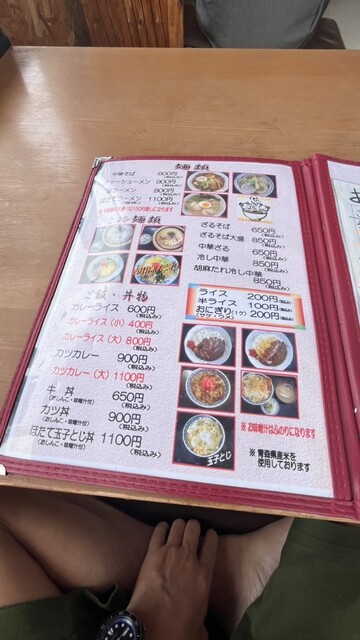 麺類
中華そば 600円(税込み)
チャーシューメン 900円(税込み)
ラーメン 800円(税込み)
1100円(税込み)
冷麺類
ざるそば 650円(税込み)
ざるそば大盛 850円(税込み)
中華ざる 650円(税込み)
冷し中華 850円(税込み)
胡麻だれ冷し中華 850円(税込み)
ご飯・丼物
カレーライス 600円(税込み)
カレーライス(小) 400円(税込み)
カレーライス(大) 800円(税込み)
カツカレー 900円(税込み)
カツカレー(大) 1100円(税込み)
牛丼 650円(税込み)
(おしんこ・味噌汁付)
カツ丼 900円(税込み)
(おしんこ・味噌汁付)
ほたて玉子とじ丼 1100円(税込み)
(おしんこ・味噌汁付)
ライス 200円(税込み)
半ライス 100円(税込み)
おにぎり(1ケ) 200円(税込み)
(サケ・ウメ)
玉子とじ
※お味噌汁はみのりになります
※青森県産米を
使用しております